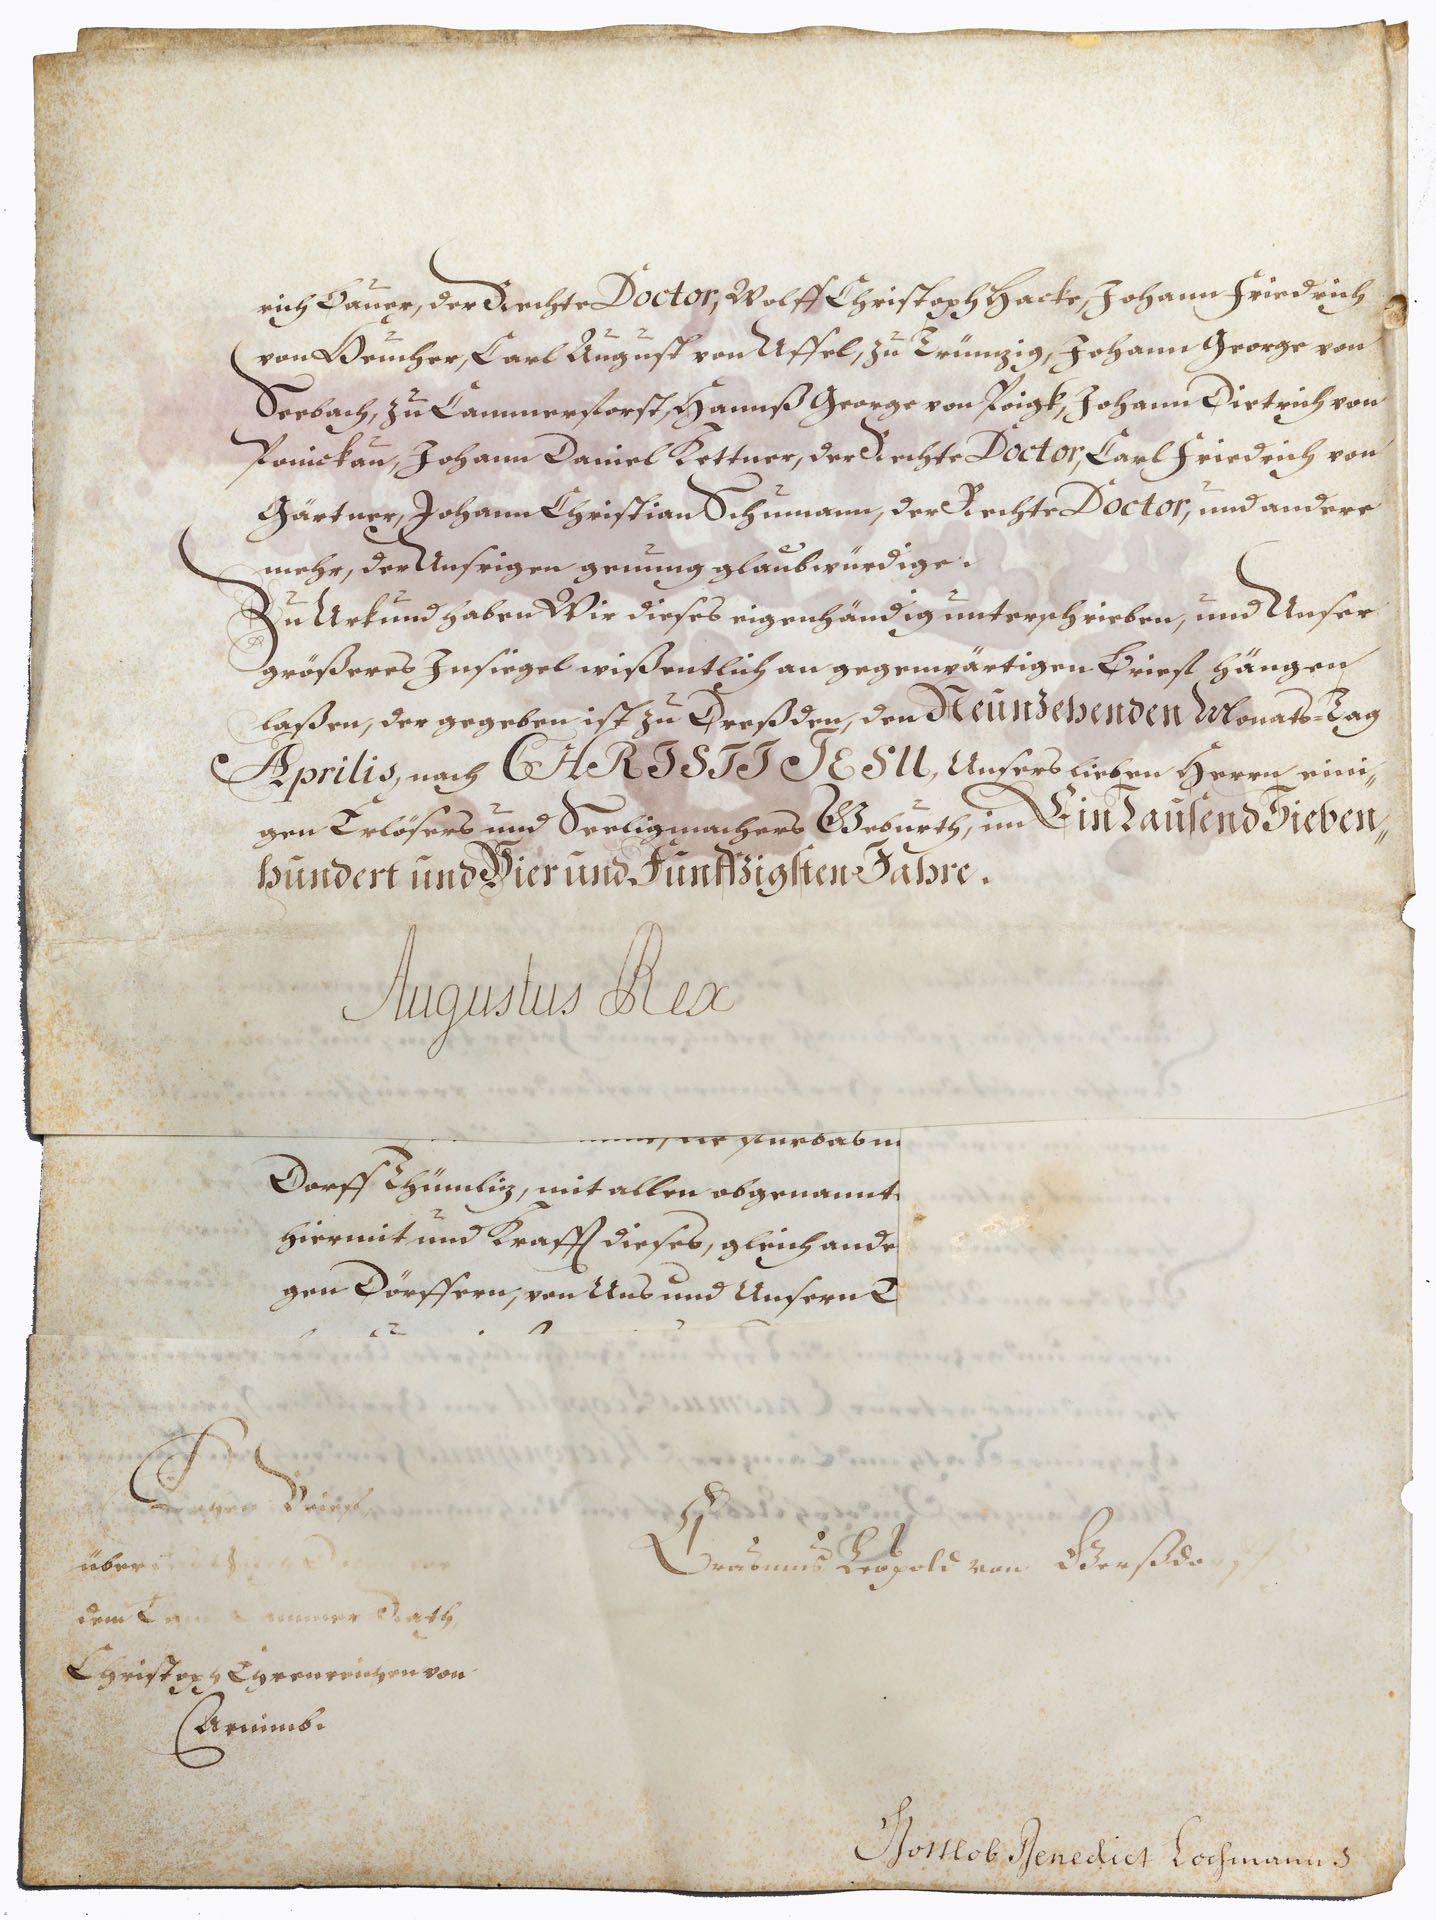 rich Bauer, der Rechte Doctor, Wolff Christoph Hacke, Johann Friedrich
von Heucher, Carl August von Uffel, zu Trünzig, Johann George von
Seebach, zu Cammerforst, Hannß George von Poigk, Johann Dietrich von
Ponickau, Johann Daniel Kettner, der Rechte Doctor, Carl Friedrich von
Gärtner, Johann Christian Schumann, der Rechte Doctor, und andere
mehr, der Unsrigen genung glaubwürdige.
Zu Urkund haben Wir dieses eigenhändig unterschrieben, und Unser
größeres Insiegel wißentlich an gegenwärtigen Brief hängen
laßen, der gegeben ist zu Dreßden, den Neunzehenden Monats-Tag
Aprilis, nach CHRISTI JESU, Unsers lieben Herrn eini-
gen Erlösers und Seeligmachers Geburth, im Ein Tausend Sieben-
hundert und Vier und Funffzigsten Jahre.
Augustus Rex
Dorff Thümliz, mit allen obgenannt
hiermit und Krafft dieses, gleich ande
gen Dörffern, von Uns und Unsern
Brief,
über
dem Cammer Rath,
Christoph Ehrenreichen von
Arnimb.
Erasmus Leopold von Gerßdorff
Gottlob Benedict Lochmann S